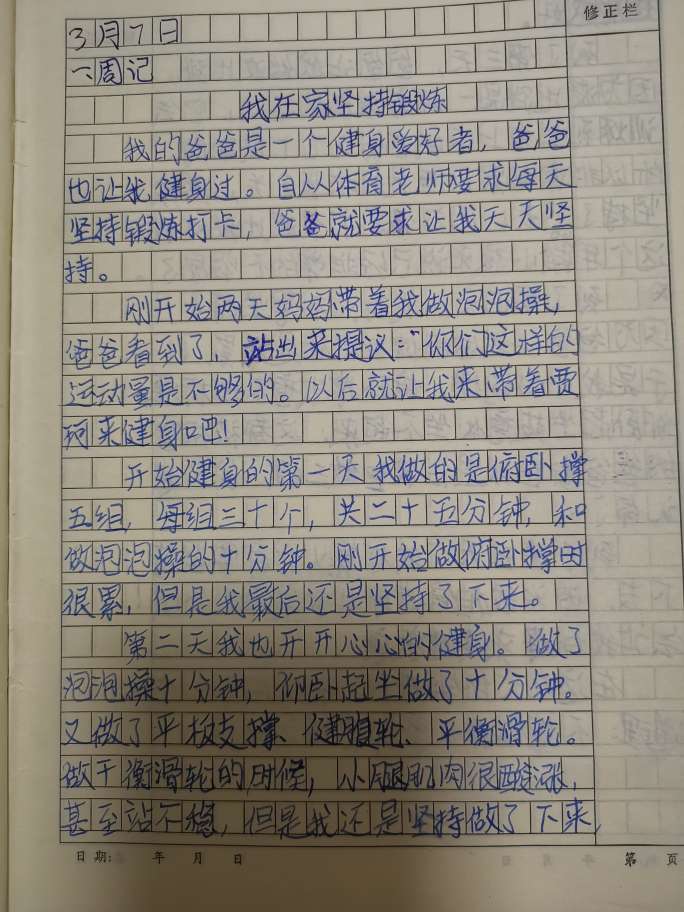 修正栏
3月7日
一、周记
我在家坚持锻炼
我的爸爸是一个健身爱好者，爸爸
也让我健身过。自从体育老师要求每天
坚持锻炼打卡，爸爸就要求让我天天坚
持。
刚开始两天妈妈带着我做泡泡操，
爸爸看到了，站出来提议：“你们这样的
运动量是不够的。以后就让我来带着贾
珂来健身吧！
开始健身的第一天我做的是俯卧撑
五组，每组三十个，共二十五分钟，和
做泡泡操的十分钟。刚开始做俯卧撑时
很累，但是我最后还是坚持了下来。
第二天我也开开心心的健身。做了
泡泡操十分钟，仰卧起坐做了十分钟。
又做了平板支撑、健腹轮、平衡滑轮。
做平衡滑轮的时候，小腿肌肉很酸涨，
甚至站不稳，但是我还是坚持做了下来，
日期： 年 月 日 第 页